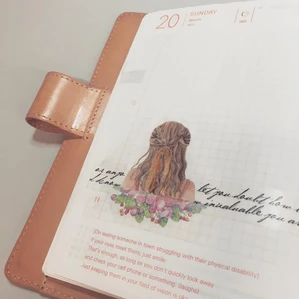 20 SUNDAY
let you doubt how
I know invaluable you are
[On seeing someone in town struggling with their physical disability]
If your eyes meet them, just smile.
That's enough, as long as you don't quickly look away
and check your cell phone or something. (laughs)
Just keeping them in your field of vision is